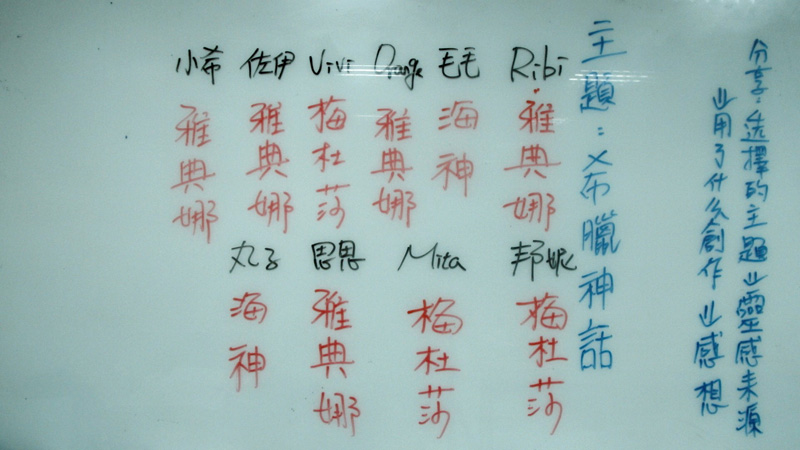 分享：選擇的主題→靈感来源
→用了什么創作→感想
主題：希臘神話
Ribi
雅典娜
毛毛
海神
Orange
雅典娜
ViVi
梅杜莎
佐伊
雅典娜
小希
雅典娜
邦妮
梅杜莎
Mita
梅杜莎
思思
雅典娜
丸子
海神